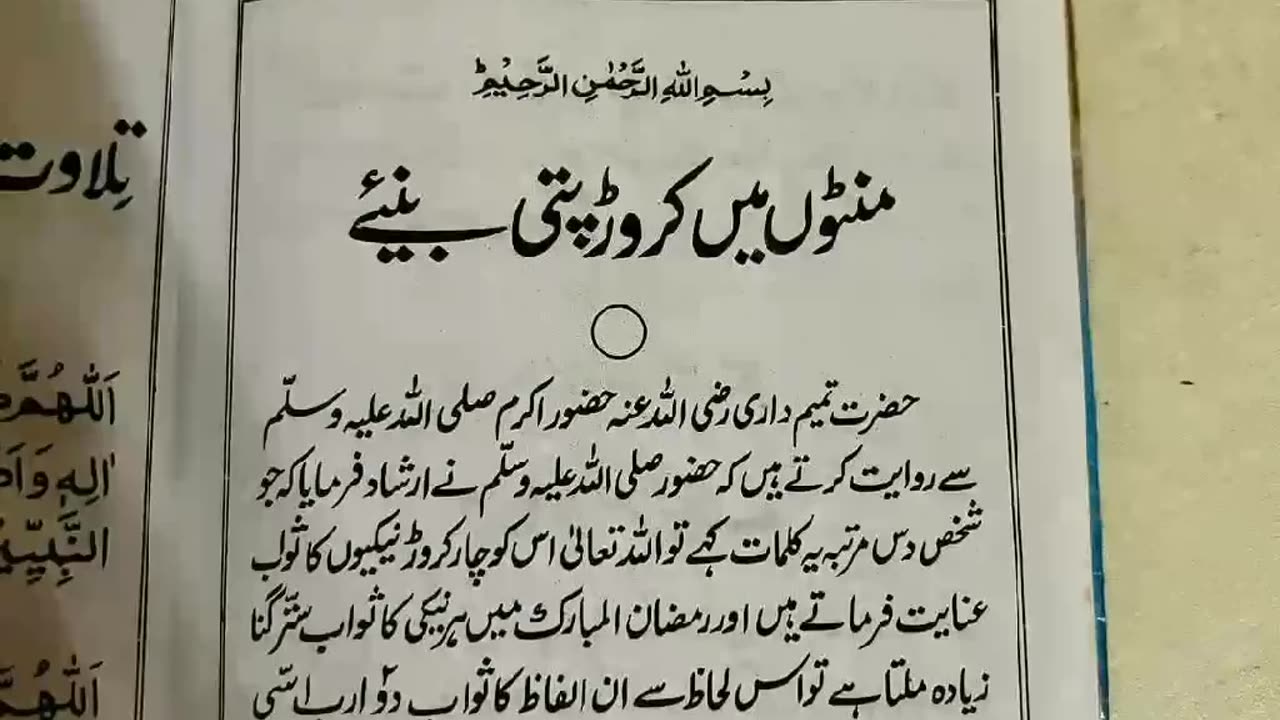 بِسْمِ اللهِ الرَّحْمٰنِ الرَّحِيْمِ
منٹوں میں کروڑ پتی بنیئے
حضرت تمیم داری رضی اللہ عنہ حضور اکرم صلی اللہ علیہ وسلّم
سے روایت کرتے ہیں کہ حضور صلی اللہ علیہ وسلّم نے ارشاد فرمایا کہ جو
شخص دس مرتبہ یہ کلمات کہے تو اللہ تعالیٰ اس کو چار کروڑ نیکیوں کا ثواب
عنایت فرماتے ہیں اور رمضان المبارک میں ہر نیکی کا ثواب ستّر گنا
زیادہ ملتا ہے تو اس لحاظ سے ان الفاظ کا ثواب دوؤ ارب اسّی
تِلاوت
اَللّٰهُمَّ
اٰلِهٖ وَ
النَّبِيِّ
اَللّٰهُمَّ